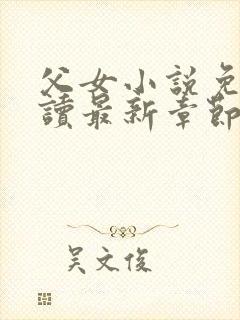 父女小說免
讀最新章節
吴文俊